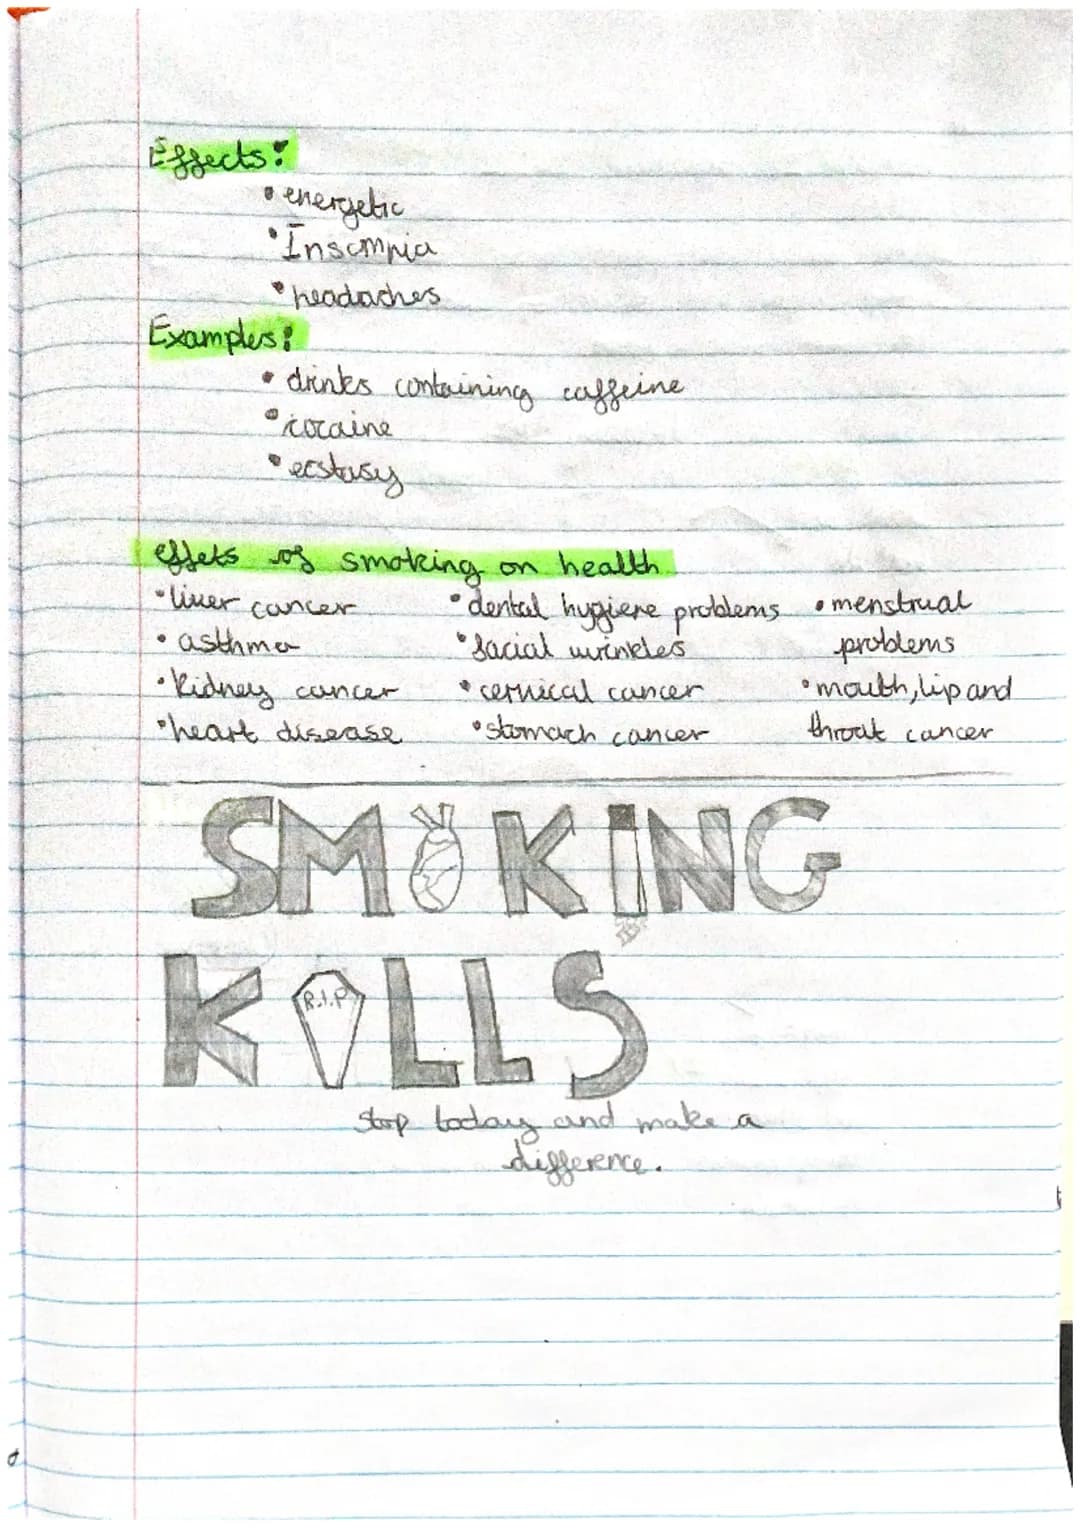 Effects:
• energetic
• Insomnia
• headaches
Examples:
• drinks containing caffeine
• cocaine
• ecstasy
effets of smoking on health
• liver cancer
• asthma
• kidney cancer
• heart disease
• dental hygiene problems
• facial wrinkles
• cervical cancer
• stomach cancer
• menstrual
problems
• mouth, lip and
throat cancer
SMOKING
KILLS
R.I.P
stop today and make a
difference.